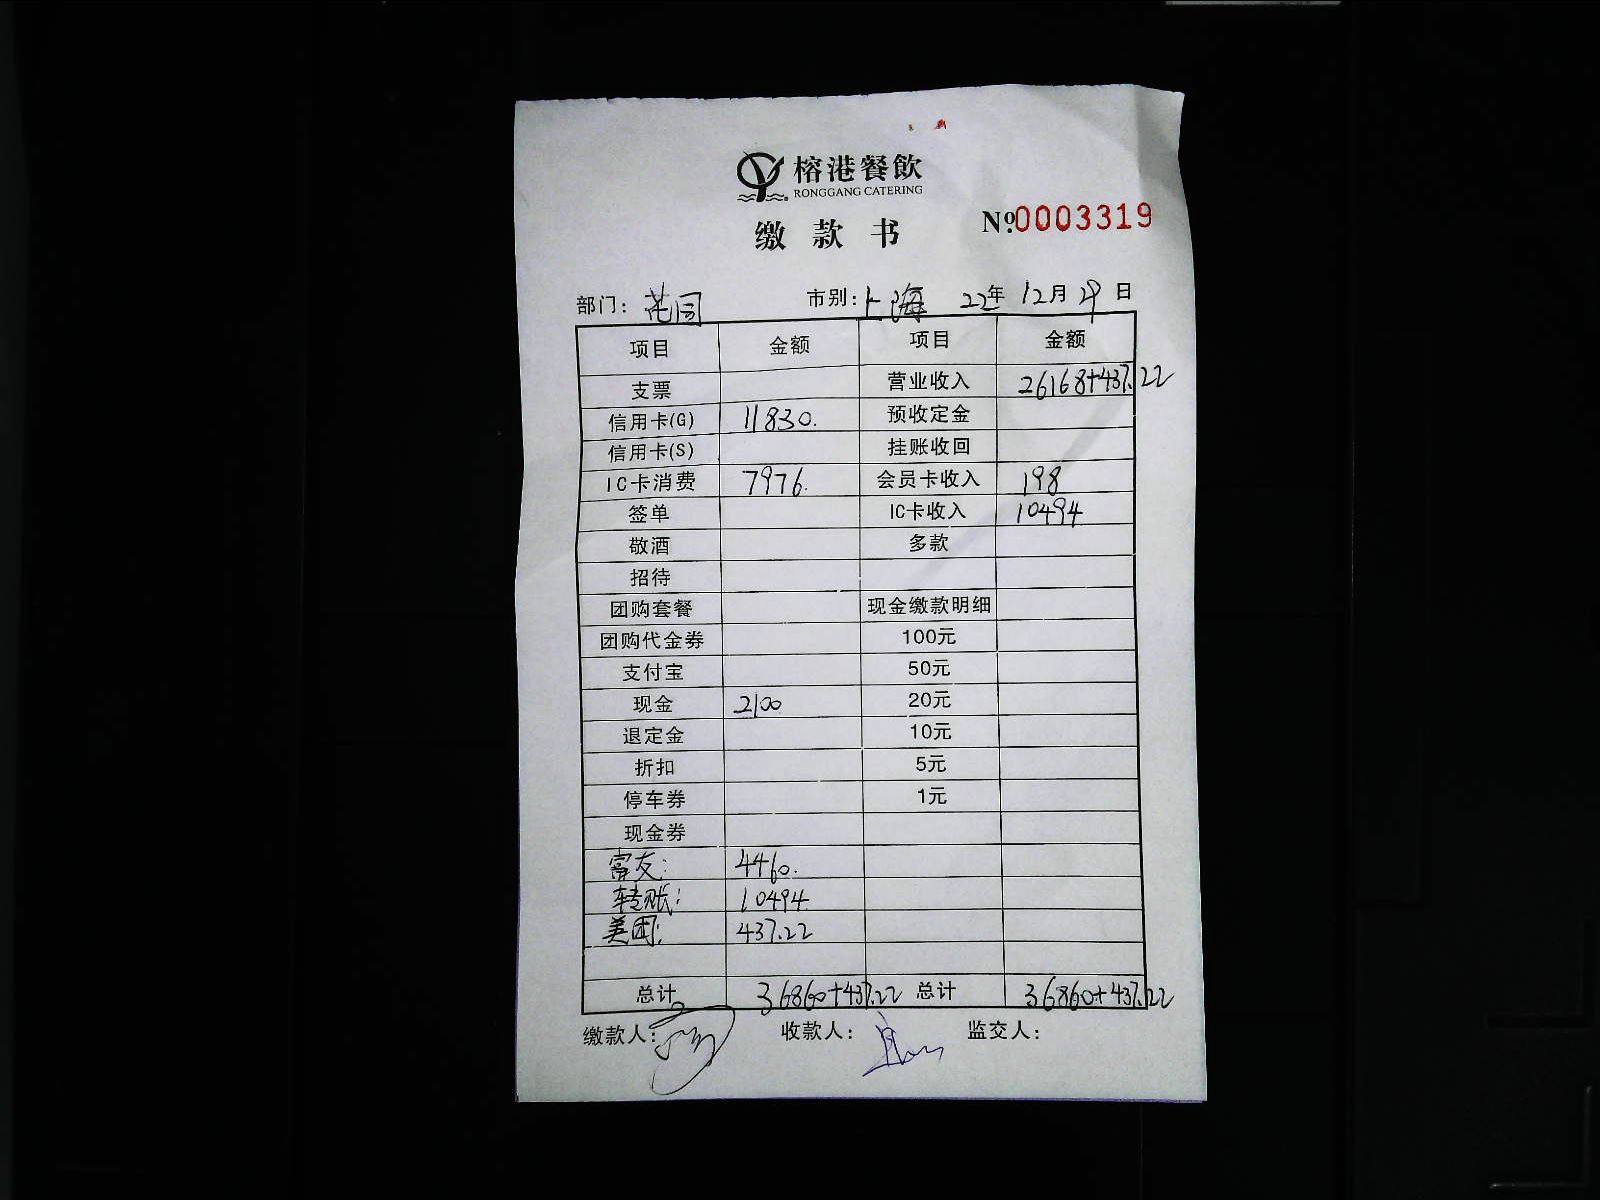 榕港餐飲
RONGGANG CATERING
缴款书 №0003319
部门: 花园 市别: 上海 22年 12月 29日
项目 金额 项目 金额
支票 营业收入 26168+437.22
信用卡(G) 11830. 预收定金
信用卡(S) 挂账收回
IC卡消费 7976. 会员卡收入 198
签单 IC卡收入 10494
敬酒 多款
招待
团购套餐 现金缴款明细
团购代金券 100元
支付宝 50元
现金 2100 20元
退定金 10元
折扣 5元
停车券 1元
现金券
富友: 4460.
转账: 10494
美团: 437.22
总计 36860+437.22 总计 36860+437.22
缴款人: 收款人: 监交人: